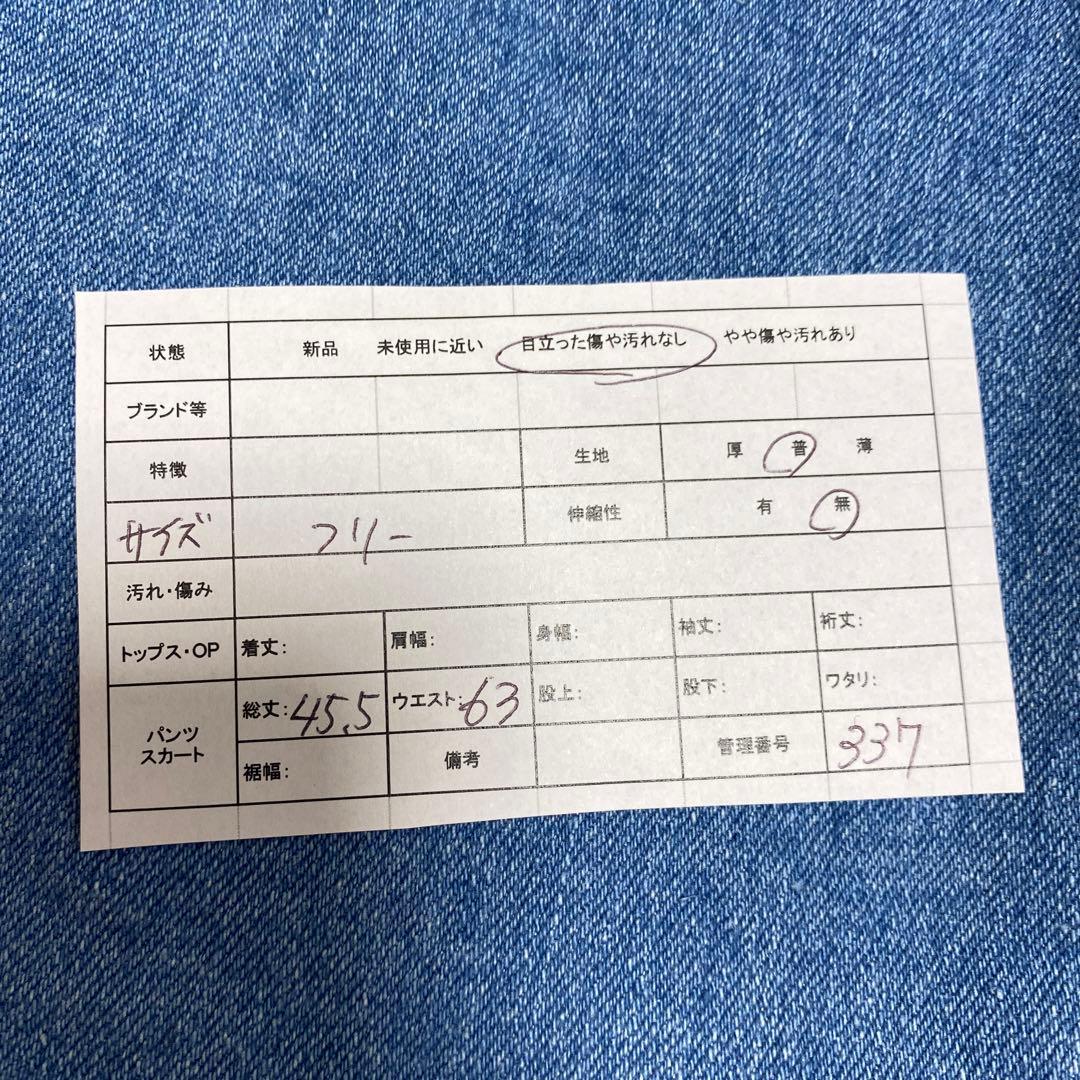 状態 新品 未使用に近い 目立った傷や汚れなし やや傷や汚れあり
ブランド等
特徴 生地 厚 普 薄
サイズ フリー 伸縮性 有 無
汚れ・傷み
トップス・OP 着丈: 肩幅: 身幅: 袖丈: 裄丈:
パンツ スカート 総丈:45.5 ウエスト:63 股上: 股下: ワタリ:
裾幅: 備考 管理番号 337